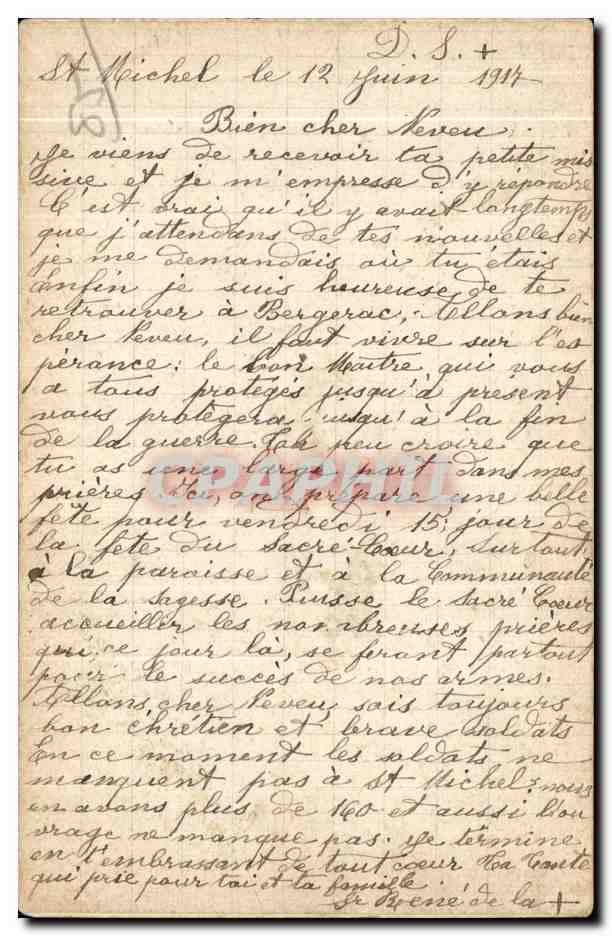 D. S. +
St Michel le 12 Juin 1917
Bien cher Neveu.
Je viens de recevoir ta petite mis
sive et je m'empresse d'y répondre
C'est vrai qu'il y avait longtemps
que j'attendans de tes nouvelles et
je me demandais où tu étais
Enfin je suis heureuse de te
retrouver à Bergerac, Allons bien
cher Neveu, il faut vivre sur l'es
pérance: le bon Maître qui vous
a tous protégés jusqu'à présent
vous protègera jusqu'à la fin
de la guerre. Tu peu croire que
tu as une large part dans mes
prières. Ici, on prépare une belle
fête pour vendredi 15, jour de
la fête du Sacré-Coeur, surtout
à la paroisse et à la Communauté
de la sagesse. Puisse le Sacré Coeur
accueillir les nombreuses prières
qui ce jour là, se feront partout
pour le succès de nos armes.
Allons, cher Neveu, sois toujours
bon chrétien et brave soldats
En ce moment les soldats ne
manquent pas à St Michel: nous
en avons plus de 160 et aussi l'ou
vrage ne manque pas. Je termine
en t'embrassant de tout coeur Ta Tante
qui prie pour toi et ta famille.
Sr René de la +
CPAPHIL